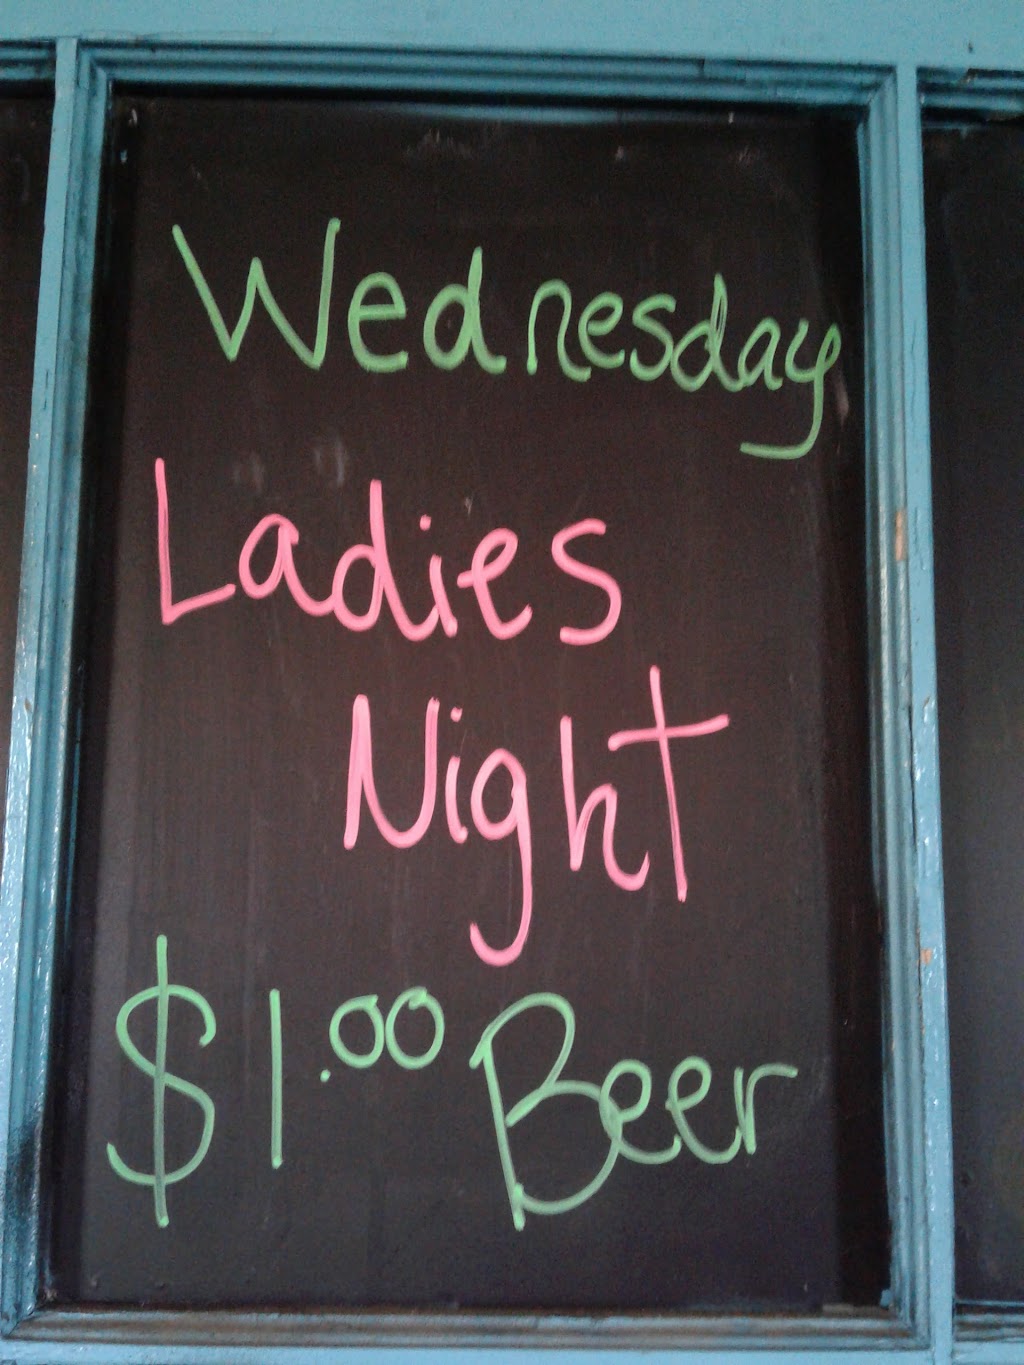 Wednesday
Ladies
Night
$1.00 Beer